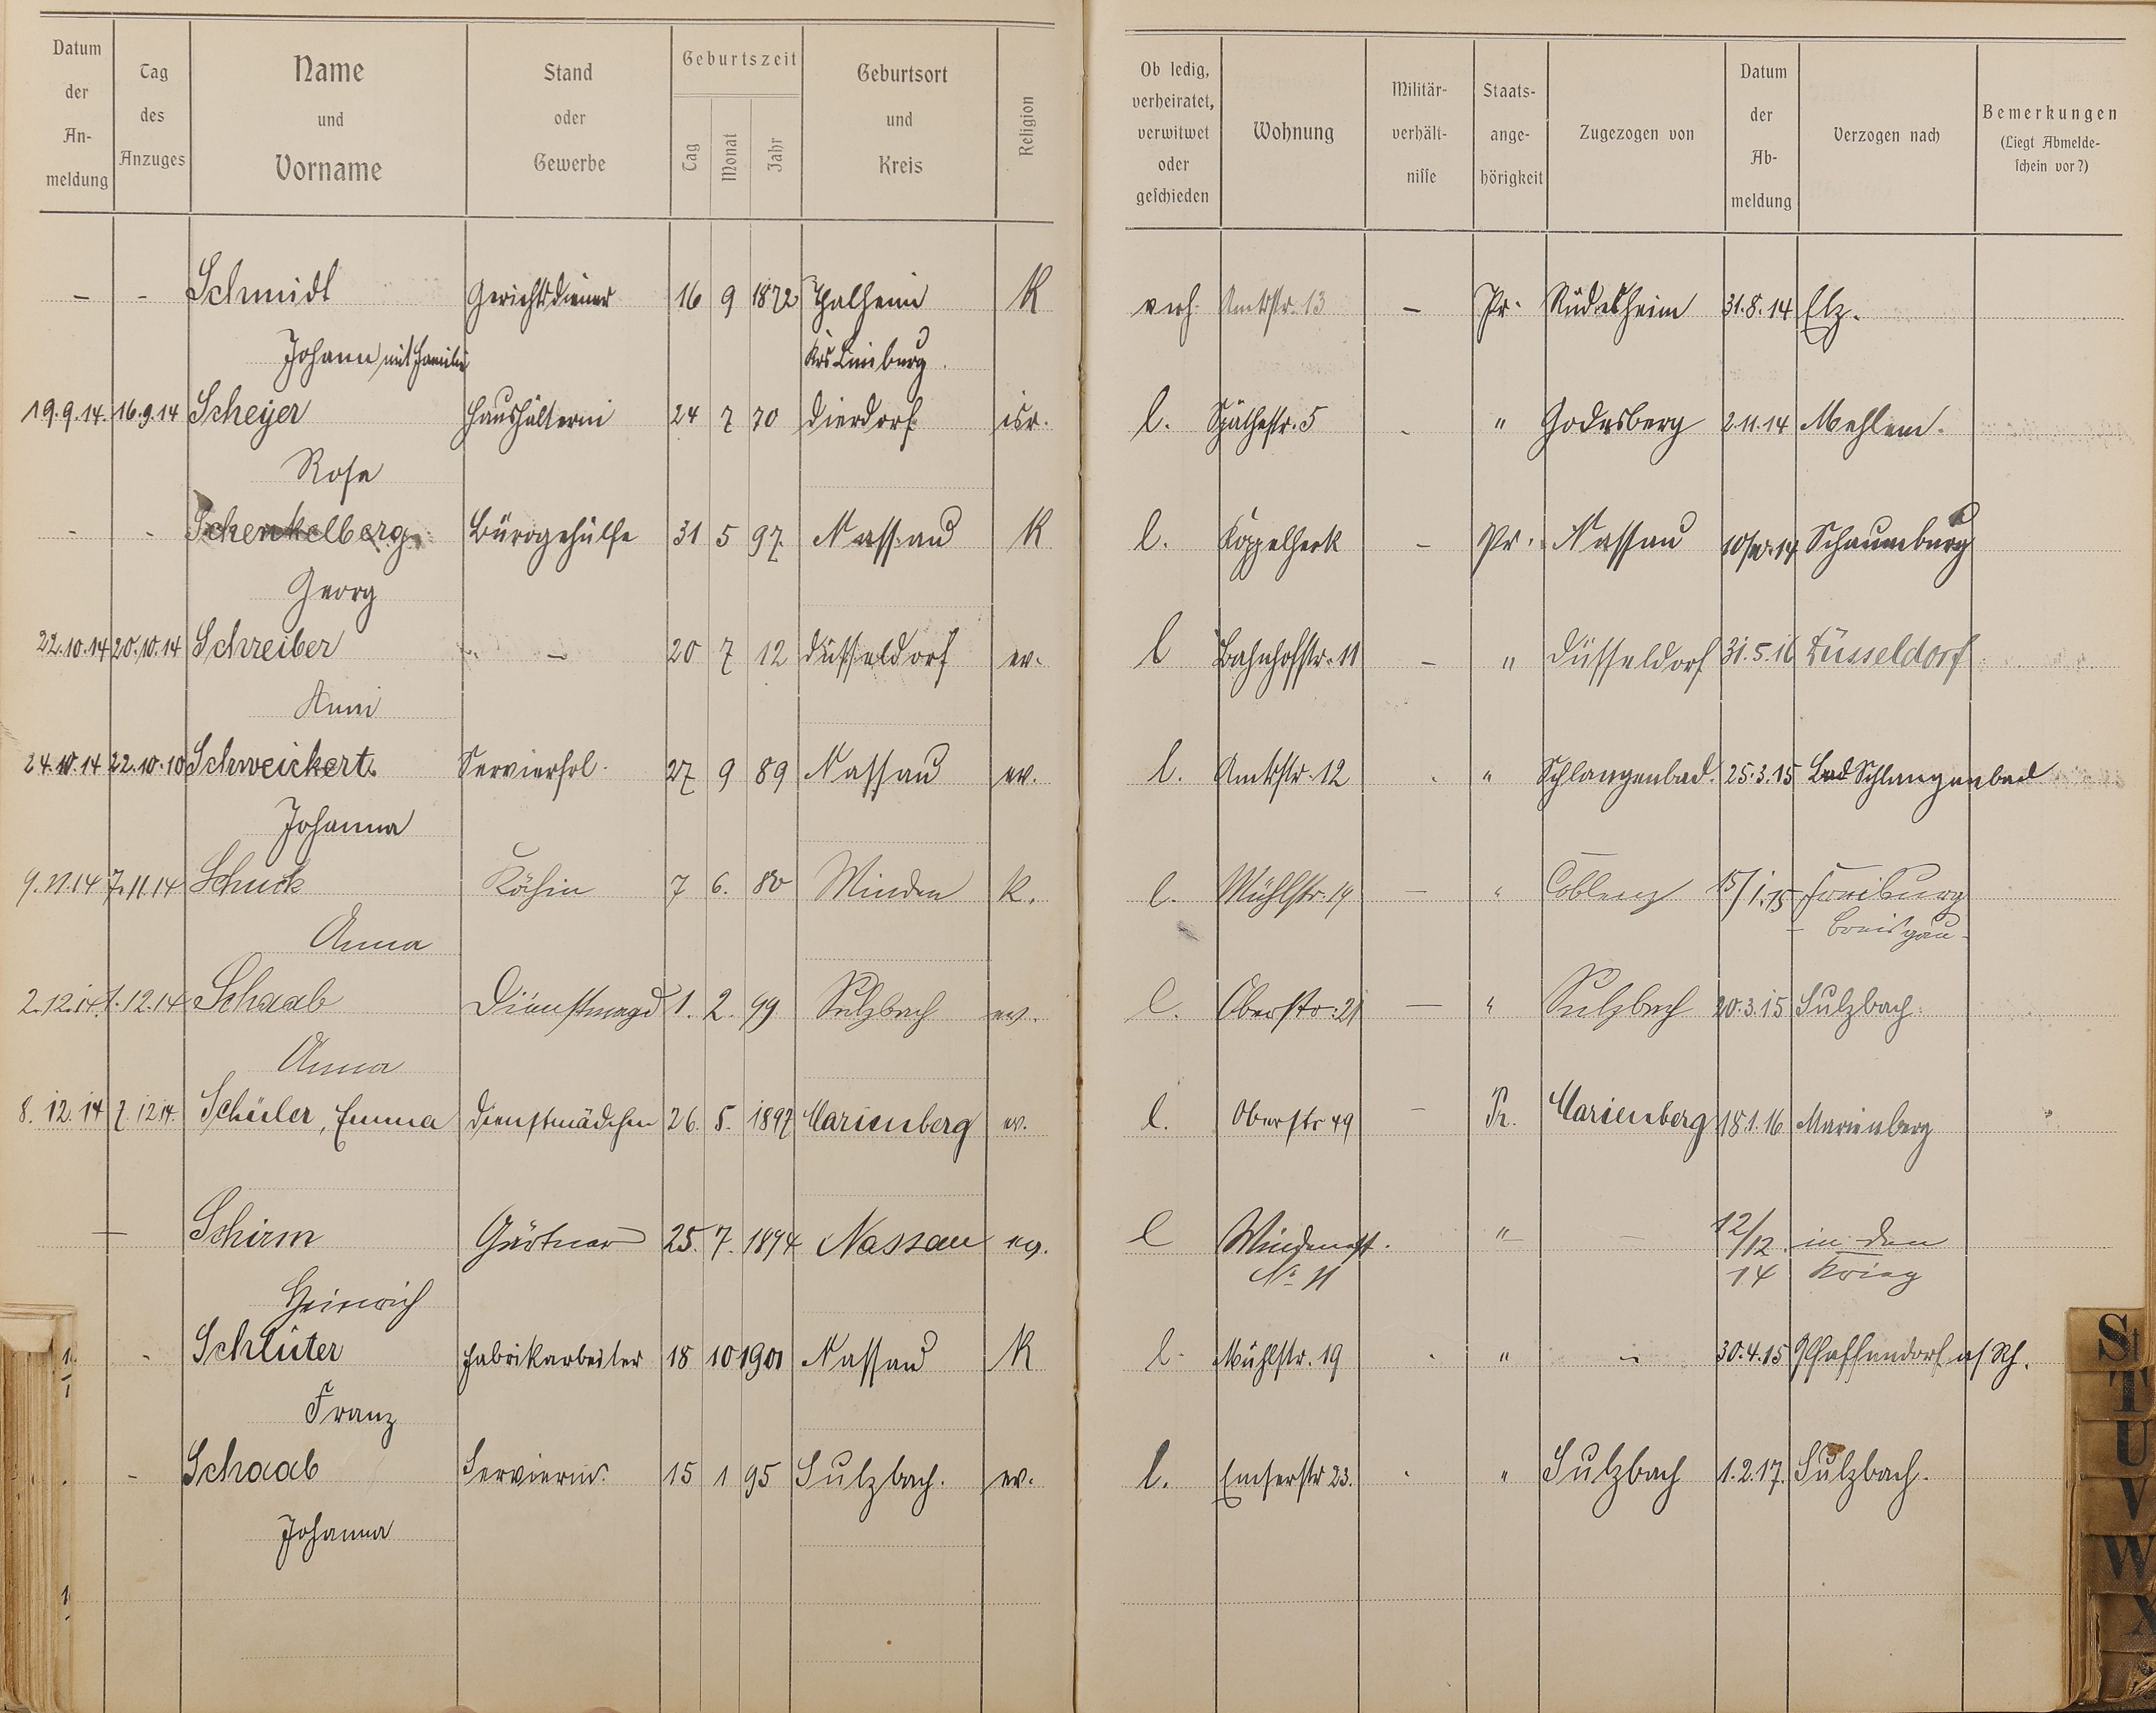 Datum der An-meldung | Tag des Anzuges | Name und Vorname | Stand oder Gewerbe | Geburtszeit Tag Monat Jahr | Geburtsort und Kreis | Religion | Ob ledig, verheiratet, verwitwet oder geschieden | Wohnung | Militär-verhält-nisse | Staats-ange-hörigkeit | Zugezogen von | Datum der Ab-meldung | Verzogen nach | Bemerkungen (Liegt Abmelde-schein vor?)
– - Schmidt Gerichtsdiener 16 9 1872 Thalheim K verh. Amtstr. 13 – Pr. Rüdesheim 31.8.14 Elz.
Johann mit Familie Krs Limburg.
19.9.14. 16.9.14 Scheyer Haushälterin 24 7 70 Dierdorf isr. l. Späthestr. 5 - " Godesberg 2.11.14 Mehlem.
Rosa
- - Schenkelberg Bürogehülfe 31 5 97. Nassau K l. Koppelheck – Pr. Nassau Schaumburg
Georg
22.10.14 20.10.14 Schreiber – 20 7 12 Düsseldorf ev. l Bahnhofstr. 11 – " Düsseldorf 31.5.16 Düsseldorf
Anni
24.10.14 22.10.10 Schweickert. Servierfrl. 27 9 89 Nassau ev. l. Amtstr. 12 - " Schlangenbad. 25.3.15 Bad Schlangenbad
Johanna
9.11.14 7.11.14 Schuck Köchin 7 6. 80 Winden K. l. Mühlstr. 19 — " Coblenz 15/1.15 Freiburg
Anna Breisgau
2.12.14. 1.12.14 Schaab Dienstmagd 1. 2. 99 Sulzbach ev. l. Oberstr. 21 — " Sulzbach 20.3.15 Sulzbach.
Anna
8. 12. 14 7. 12 14. Schüler, Emma Dienstmädchen 26. 5. 1897 Marienberg ev. l. Oberstr 49 – Pr. Marienberg 18.1.16 Marienberg
— Schirm Gärtner 25. 7. 1894 Nassau ev. l Windenerst. " – 12/12. in den
Heinrich № 11 14 Krieg
- Schlüter Fabrikarbeiter 18 10 1901 Nassau K l. Mühlstr. 19 - " – 30.4.15 Pfaffendorf a/Rh.
Franz
- Schaab Servierm. 15 1 95 Sulzbach. ev. l. Emserstr 23. - " Sulzbach 1.2.17. Sulzbach.
Johanna
St
T
U
V
W
X